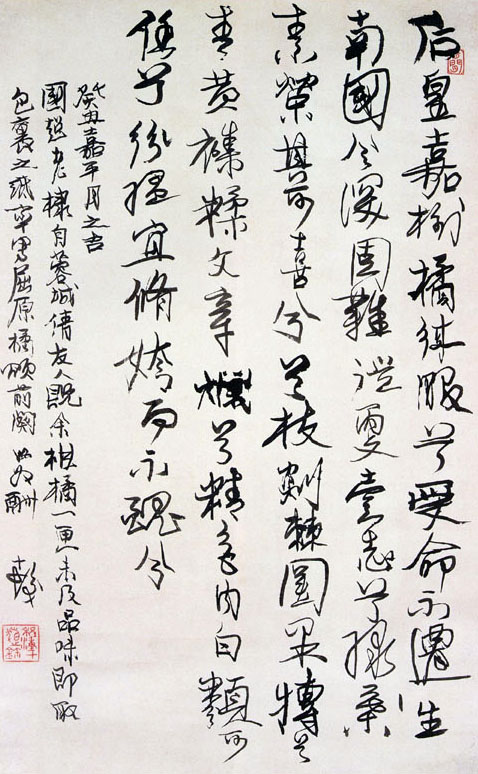 后皇嘉樹橘徠服兮受命不遷生
南國兮深固難徙更壹志兮綠葉
素榮其可喜兮曾枝剡棘圜果摶兮
青黃雜糅文章爛兮精色内白類可
任兮紛緼宜脩姱而不醜兮
癸丑嘉平月之吉
國超老棣自蓉城倩友人貺余柑橘一匣未及品味即取
包裹之紙率書屈原橘頌前闋以為酬